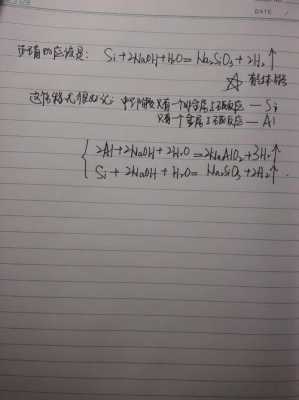 DATE
正确的应该是: Si+2NaOH+H2O=Na2SiO3+2H2↑
☆
这个特 中学阶段只有一个非金属与碱反应 — Si
只有一个金属与碱反应 — Al
2Al+2NaOH+2H2O=2NaAlO2+3H2↑
Si+2NaOH+H2O=Na2SiO3+2H2↑